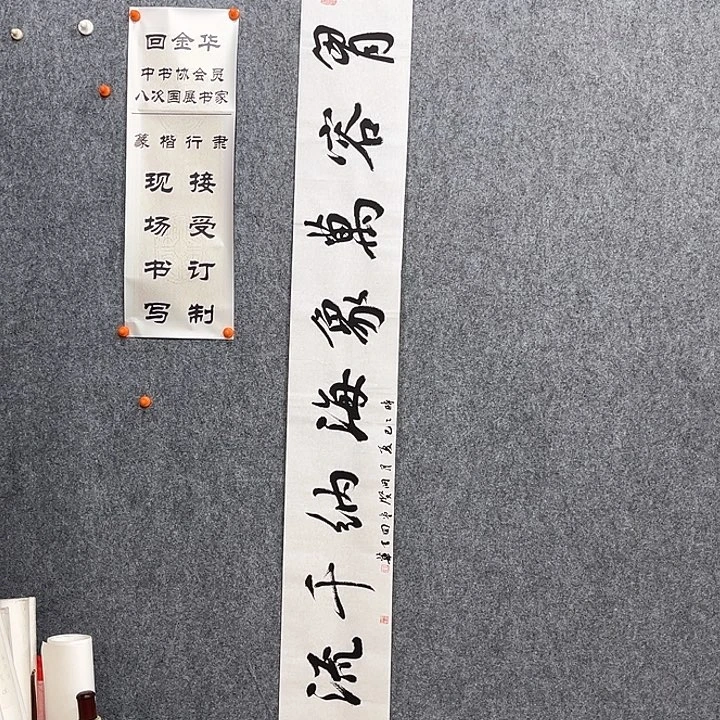 回金华
中书协会员
八次国展书家
篆楷行隶
现场书写
接受订制
胃容萬象海纳千流